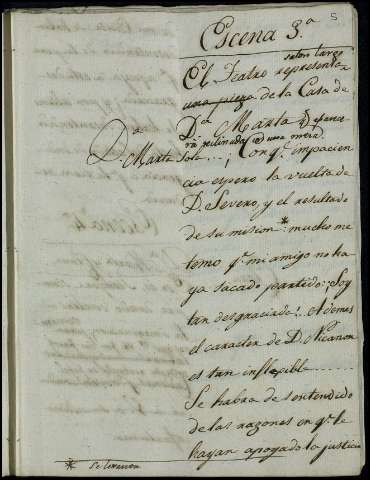 5
Escena 3.a
salon largo
El Teatro representa
una pieza de la Casa de
D.a Marta
sola
D.a Marta ¡Con q.e impacien
cia espero la vuelta de
D. Severo, y el resultado
de su mision * : mucho me
temo q.e mi amigo no ha
ya sacado partido: ¡Soy
tan desgraciada!.. Ademas
el caracter de D. Nicanor
es tan inflexible
Se habra desentendido
de las razones en q.e le
hayan apoyado la justicia
* Se levanta